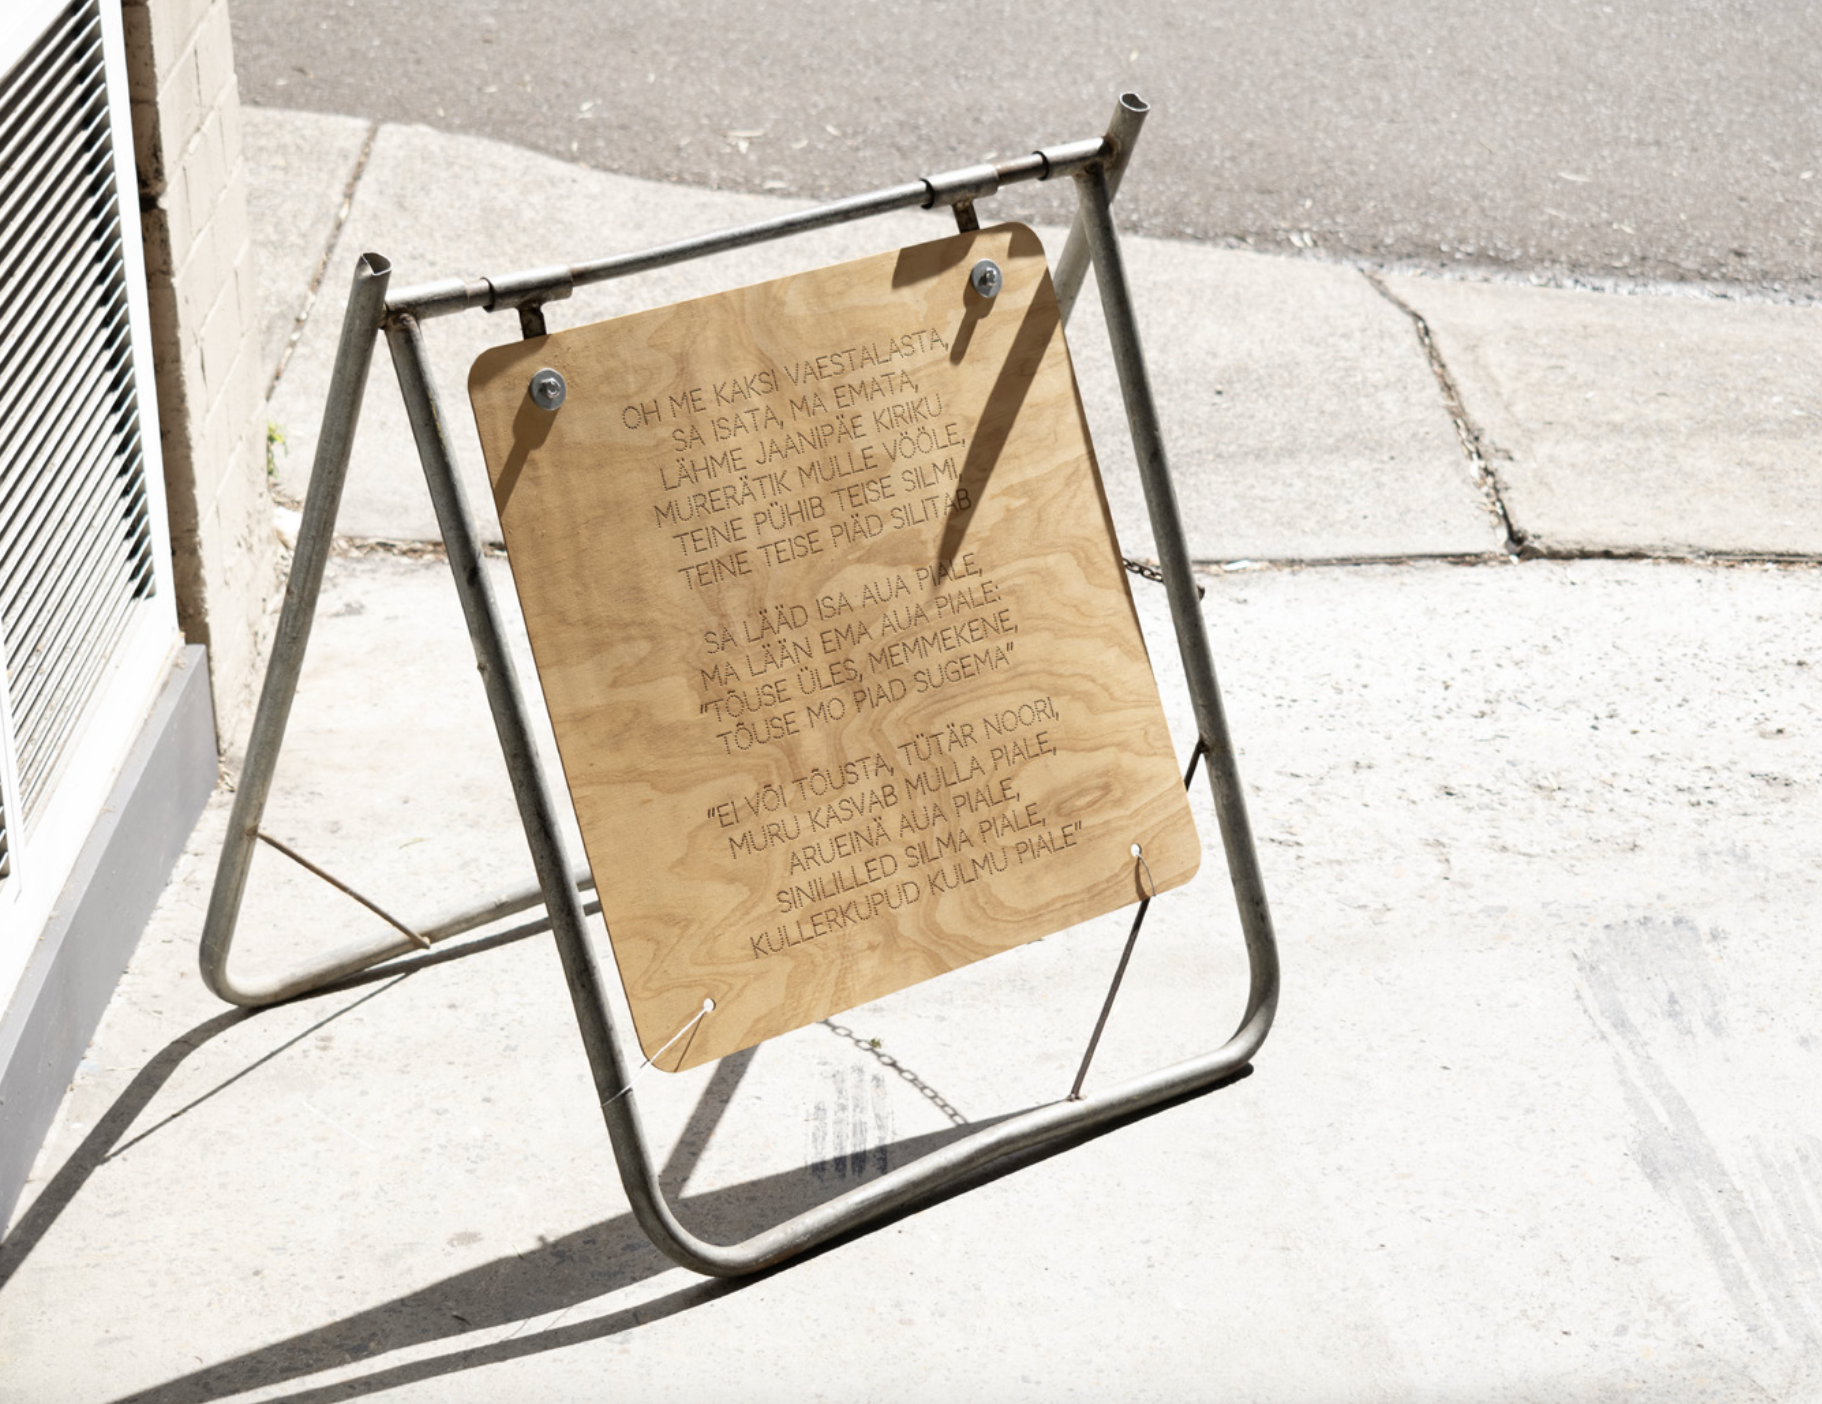 OH ME KAKSI VAESTALASTA,
SA ISATA, MA EMATA,
LÄHME JAANIPÄE KIRIKU
MURERÄTIK MULLE VÖÖLE,
TEINE PÜHIB TEISE SILMI,
TEINE TEISE PIÄD SILITAB
SA LÄÄD ISA AUA PIALE,
MA LÄÄN EMA AUA PIALE:
"TÕUSE ÜLES, MEMMEKENE,
TÕUSE MO PIAD SUGEMA"
"EI VÕI TÕUSTA, TÜTÄR NOORI,
MURU KASVAB MULLA PIALE,
ARUEINÄ AUA PIALE,
SINILILLED SILMA PIALE,
KULLERKUPUD KULMU PIALE"